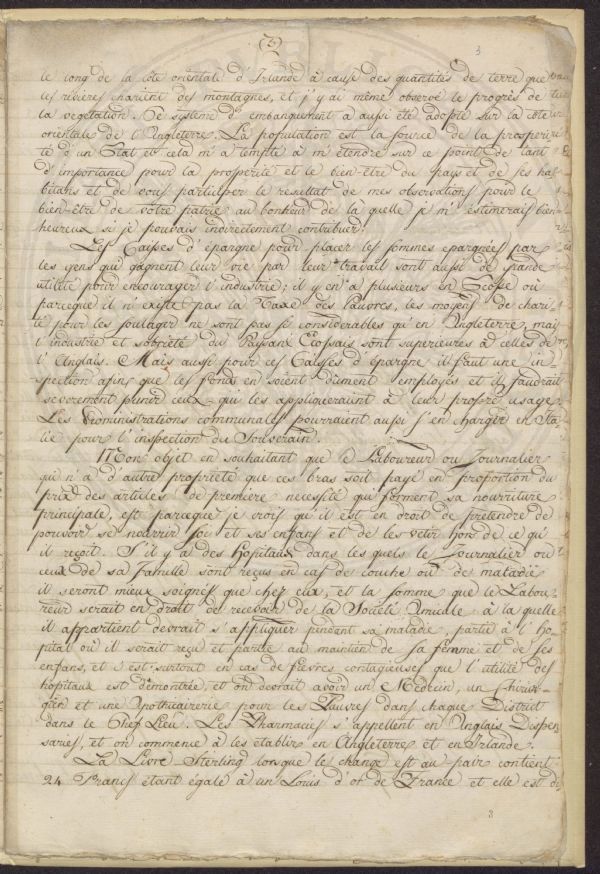 (3)
3
le long de la côte orientale d'Irlande à cause des quantités de terre que
les rivières charient des montagnes, et j'y ai même observé le progrès de
la vegetation. Ce système d'embanquement a aussi été adopté sur la côte
orientale de l'Angleterre. La population est la source de la prosperi
té d'un Etat et cela m'a tempté à m'étendre sur ce point de tant
d'importance pour la prosperité et le bien-être du pays et de ses ha
bitans et de vous participer le resultat de mes observations pour le
bien-être de votre patrie au bonheur de la quelle je m'estimerais bien
heureux si je pouvais indirectement contribuer.
Les Caisses d'épargne pour placer les sommes epargnées par
les gens qui gagnent leur vie par leur travail sont aussi de grande
utilité pour encourager l'industrie; il y en a plusieurs en Ecosse où
parceque il n'existe pas la Taxe des Pauvres, les moyens de chari-
té pour les soulager ne sont pas si considerables qu'en Angleterre, mais
l'industrie et sobrieté du Paysans Ecossais sont superieures à celles de
l'Anglais. Mais aussi pour ces Caisses d'épargne il faut une in-
spection afins que les fonds en soient dûment employés et il faudrait
severement punir ceux qui les appliqueraient à leur propre usage.
Les Administrations communales pourraient aussi s'en charger en Ita-
lie pour l'inspection du Souverain.
Mon objet en souhaitant que le Laboureur ou Journalier
qui n'a d'autre proprieté que ces bras soit payé en proportion du
prix des articles de premiere necesité qui forment sa nourriture
principale, est parceque je crois qu'il est en droit de pretendre de
pouvoir se nourrir soi et ses enfans et de les vetir hors de ce qu'
il reçoit. S'il y a des hopitaux dans les quels le Journalier ou
ceux de sa Famille sont reçus en cas de couche ou de maladie
il seront mieux soignés que chez eux, et la somme que le Labou-
reur serait en droit de recevoir de la Société Amicale à la quelle
il appartient devrait s'appliquer pendant sa maladie, partie à l'Ho
pital où il serait reçu et partie au maintien de sa femme et de ses
enfans, et s'est surtout en cas de fievres contagieuses que l'utilité des
hopitaux est démontrée, et on devrait avoir un Médecin, un Chirur-
gien et une Apothicairerie pour les Pauvres dans chaque District
dans le Chef Lieu. Les Pharmacies s'appellent en Anglais Dispen
saries, et on commence à les etablir en Angleterre et en Irlande.
La Livre Sterling lorsque le change est au pair contient
24 Francs étant égale à un Louis d'or de France et elle est di
3